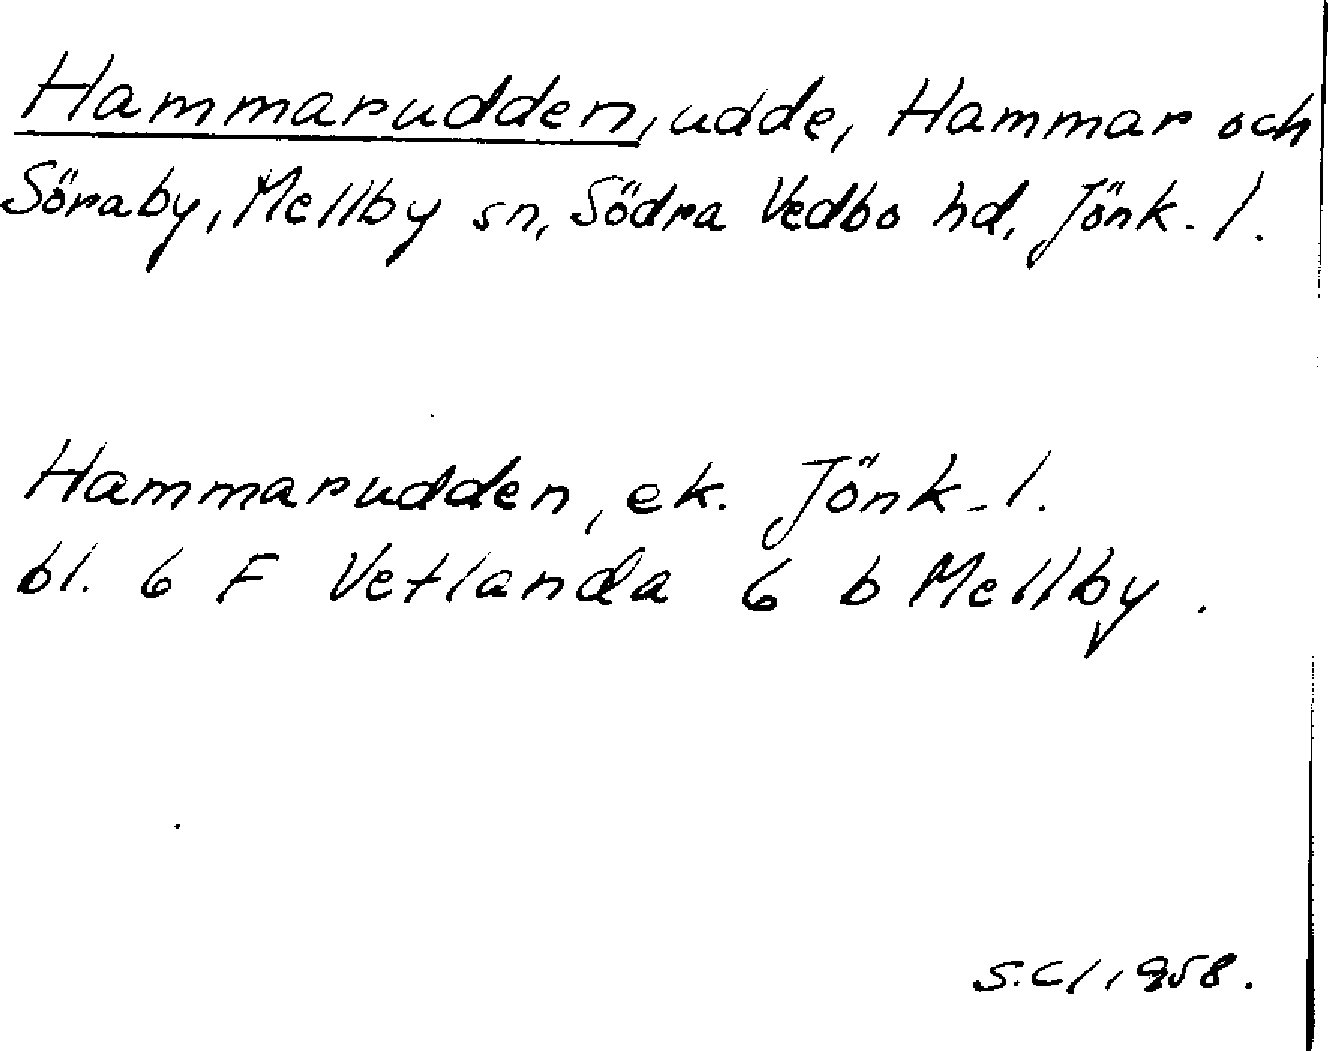 Hammarudden, udde, Hammar och
Söraby, Mellby sn, Södra Vedbo hd, Jönk. l.
Hammarudden, ek. Jönk. l.
bl. 6 F Vetlanda 6 b Mellby.
S.C. 1958.